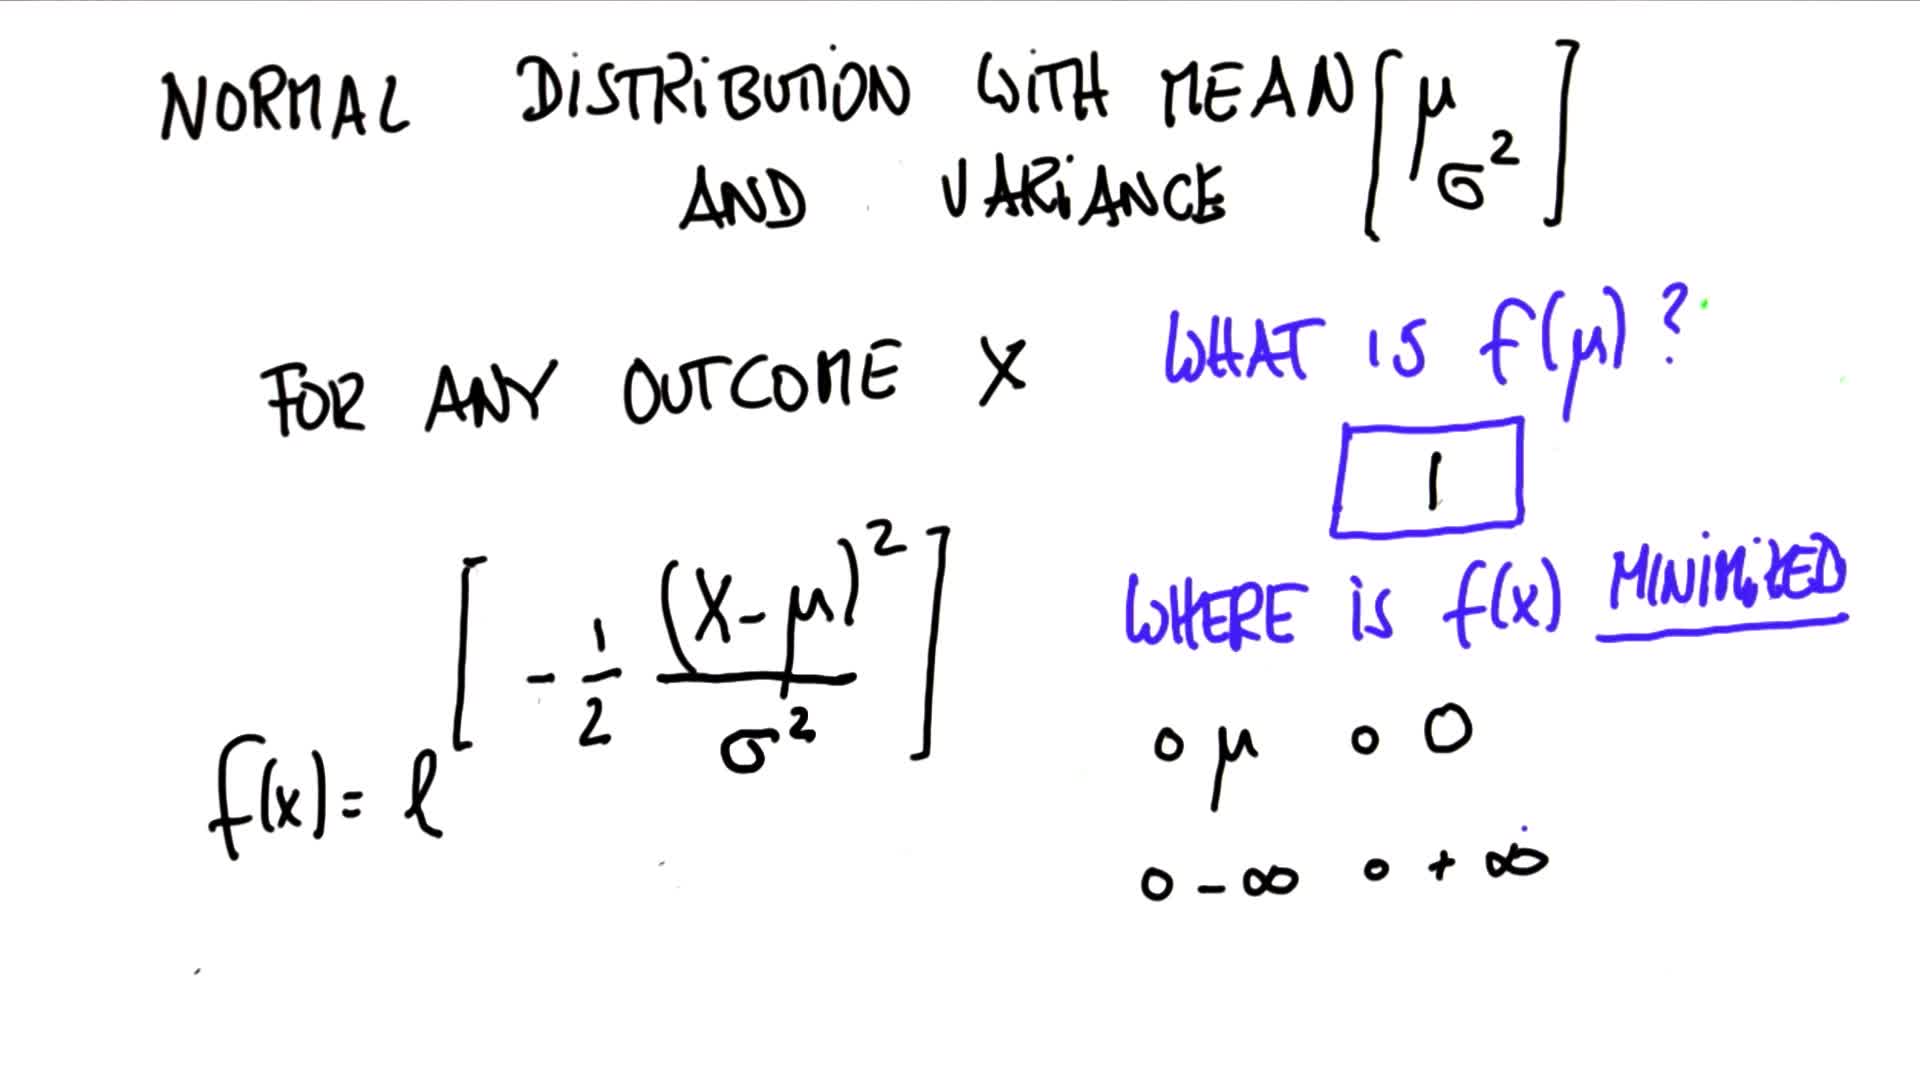 NORMAL DISTRIBUTION WITH MEAN [μ
AND VARIANCE σ²]
FOR ANY OUTCOME X
f(x) = e^[-1/2 (X-μ)²/σ²]
WHAT IS f(μ)?
1
WHERE IS f(x) MINIMIZED
o μ o 0
o -∞ o +∞